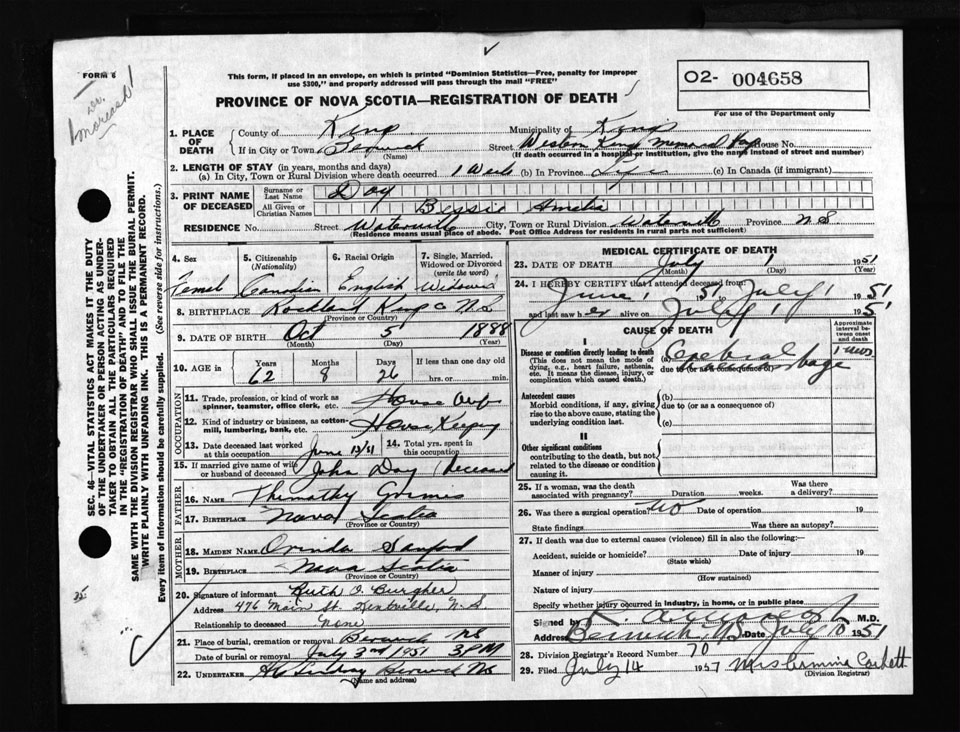 FORM 6
Dr.
This form, if placed in an envelope, on which is printed "Dominion Statistics—Free, penalty for improper
use $300," and properly addressed will pass through the mail "FREE"
O2- 004658
For use of the Department only
PROVINCE OF NOVA SCOTIA—REGISTRATION OF DEATH
1. PLACE OF DEATH
County of Kings Municipality of Kings
If in City or Town Berwick (Name) Street Western Kings Memorial Hosp House No.
(If death occurred in a hospital or institution, give the name instead of street and number)
2. LENGTH OF STAY (in years, months and days)
(a) In City, Town or Rural Division where death occurred 1 Week (b) In Province Life (c) In Canada (if immigrant)
3. PRINT NAME OF DECEASED
Surname or Last Name Day
All Given or Christian Names Bessie Amelia
RESIDENCE No. Street Waterville City, Town or Rural Division Waterville Province N.S
(Residence means usual place of abode. Post Office Address for residents in rural parts not sufficient)
SEC. 46—VITAL STATISTICS ACT MAKES IT THE DUTY
OF THE UNDERTAKER OR PERSON ACTING AS UNDER-
TAKER TO OBTAIN ALL THE PARTICULARS REQUIRED
IN THE "REGISTRATION OF DEATH" AND TO FILE THE
SAME WITH THE DIVISION REGISTRAR WHO SHALL ISSUE THE BURIAL PERMIT.
WRITE PLAINLY WITH UNFADING INK. THIS IS A PERMANENT RECORD.
Every item of information should be carefully supplied. (See reverse side for instructions.)
4. Sex
Female
5. Citizenship (Nationality)
Canadian
6. Racial Origin
English
7. Single, Married, Widowed or Divorced (write the word)
Widowed
8. BIRTHPLACE Rockland Kings Co N.S
(Province or Country)
9. DATE OF BIRTH Oct 5 1888
(Month) (Day) (Year)
10. AGE in Years 62 Months 8 Days 26 If less than one day old
hrs. or min.
OCCUPATION
11. Trade, profession, or kind of work as
spinner, teamster, office clerk, etc. House Wife
12. Kind of industry or business, as cotton-
mill, lumbering, bank, etc. House Keeping
13. Date deceased last worked
at this occupation June
14. Total yrs. spent in
this occupation
15. If married give name of wife
or husband of deceased John Day (Deceased
FATHER
16. NAME
17. BIRTHPLACE Nova Scotia
(Province or Country)
MOTHER
18. MAIDEN NAME Orinda Sanford
19. BIRTHPLACE Nova Scotia
(Province or Country)
20. Signature of informant Ruth O. Burgher
Address 476 Main St. Kentville, N.S
Relationship to deceased None
21. Place of burial, cremation or removal Berwick NS
Date of burial or removal July 3rd 1951 3 PM
22. UNDERTAKER Berwick NS
(Name and address)
MEDICAL CERTIFICATE OF DEATH
23. DATE OF DEATH July 1 1951
(Month) (Day) (Year)
24. I HEREBY CERTIFY that I attended deceased from
June 1 1951 July 1 1951
and last saw her alive on July 1 1951
CAUSE OF DEATH
Approximate interval between onset and death
I
Disease or condition directly leading to death
(This does not mean the mode of
dying, e.g., heart failure, asthenia,
etc. It means the disease, injury, or
complication which caused death.)
(a) Cerebral
due to (or as a consequence of)
Antecedent causes
Morbid conditions, if any, giving
rise to the above cause, stating the
underlying condition last.
(b)
due to (or as a consequence of)
(c)
II
Other significant conditions
contributing to the death, but not
related to the disease or condition
causing it.
25. If a woman, was the death
associated with pregnancy? Duration weeks. Was there
a delivery?
26. Was there a surgical operation? no Date of operation 19
State findings Was there an autopsy?
27. If death was due to external causes (violence) fill in also the following:—
Accident, suicide or homicide? Date of injury 19
(State which)
Manner of injury
(How sustained)
Nature of injury
Specify whether injury occurred in industry, in home, or in public place
Signed by M.D.
Address Berwick, NS Date July 10 1951
28. Division Registrar's Record Number 70
29. Filed July 14 1957 Mrs
(Division Registrar)